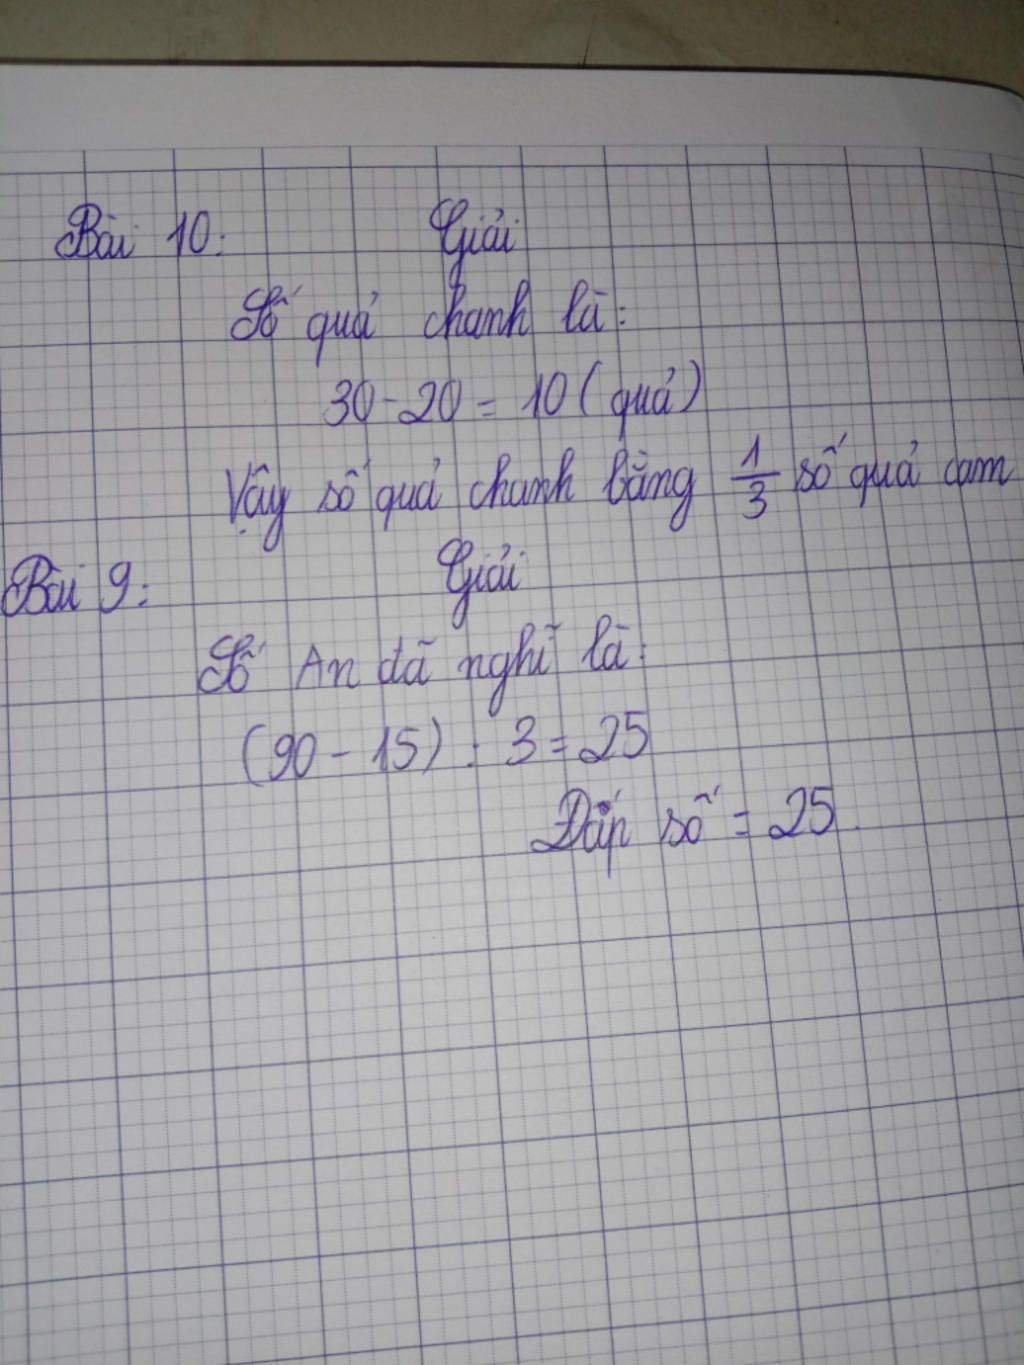 Bài 10: Giải
Số quả chanh là:
30 - 20 = 10 (quả)
Vậy số quả chanh bằng 1/3 số quả cam
Bài 9: Giải
Số An đã nghĩ là:
(90 - 15) : 3 = 25
Đáp số = 25.